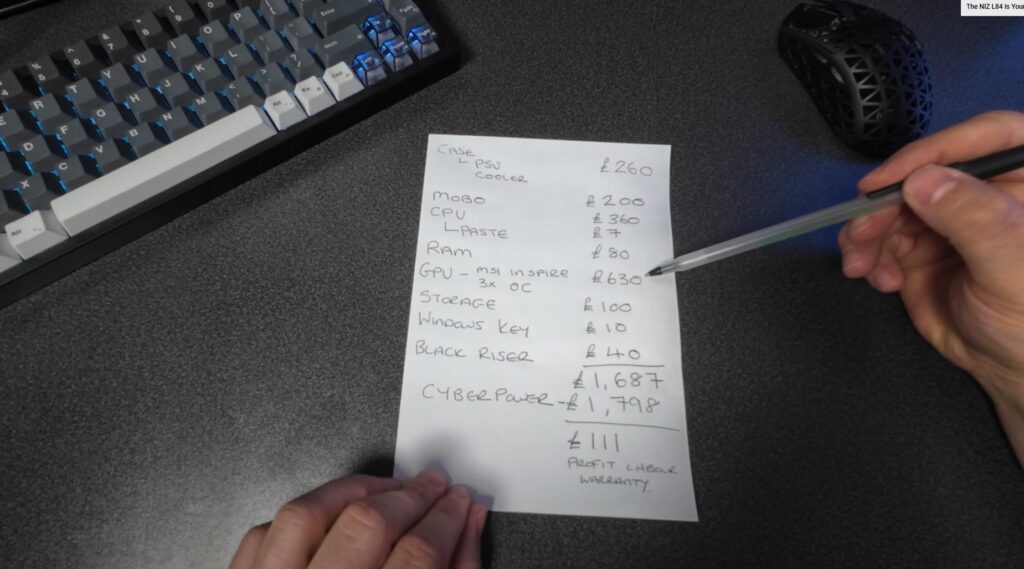 The NIZ L84 Is Your
CASE £260
└ PSU
COOLER
MOBO £200
CPU £360
└ PASTE £7
RAM £80
GPU - MSI INSPIRE £630
3x OC
STORAGE £100
WINDOWS KEY £10
BLACK RISER £40
£1,687
CYBERPOWER - £1,798
£111
PROFIT LABOUR
WARRANTY.